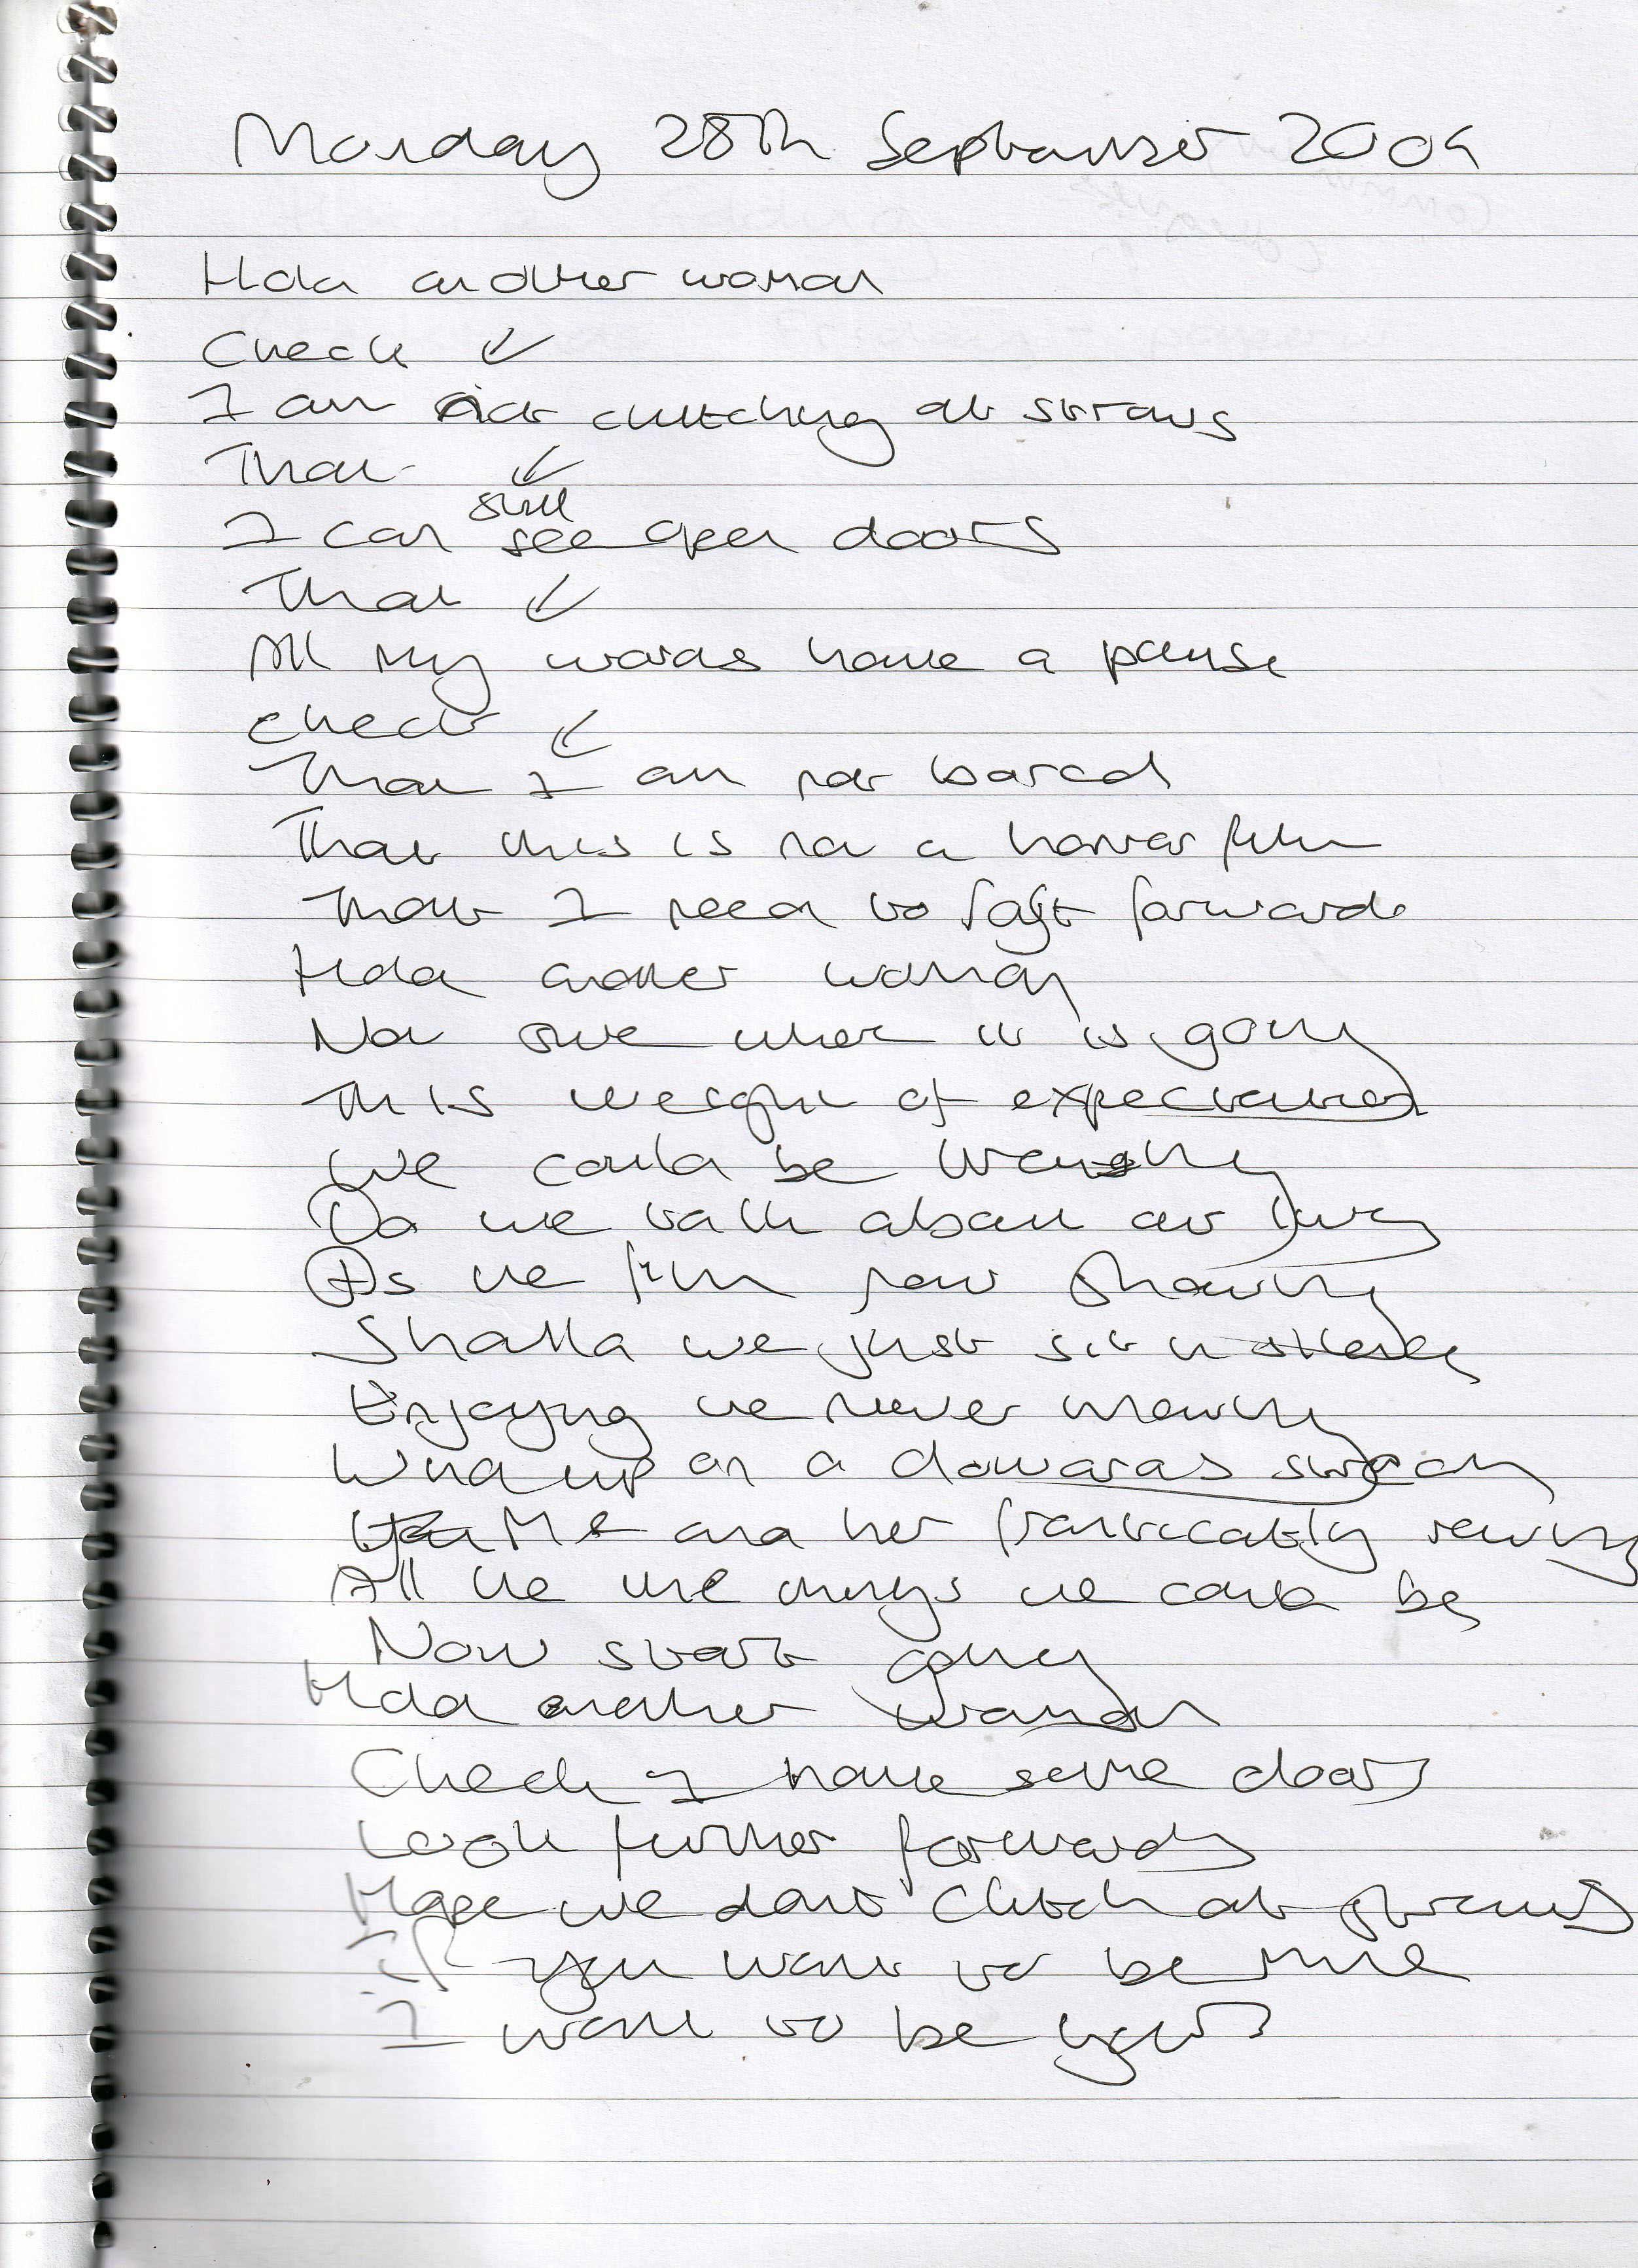 Monday 28th September 2009
Hold another woman
Check ↙
I am not clutching at straws
That ↙
I can still see open doors
That ↙
All my words have a pause
Check ↙
That I am not bored
That this is not a horror film
That I need to fast forwards
Hold another woman
Not sure where it is going
This weight of expectation
We could be
Do we talk about our lives
As we film now showing
Shall we just sit in
Enjoying we never
Wind up on a downwards
Me and her frantically
All the things we could be
Now start going
Hold another woman
Check I have some doors
Look further forwards
Hope we dont clutch at straws
If you want to be mine
I want to be yours